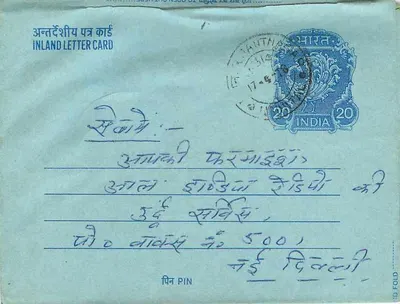 अन्तर्देशीय पत्र कार्ड
INLAND LETTER CARD
भारत
20 20
INDIA
सेवामें:-
आपकी फरमाइश,
आल इण्डिया रेडियो की
उर्दू सर्विस,
पो० बाक्स नं. 500,
नई दिल्ली
पिन PIN